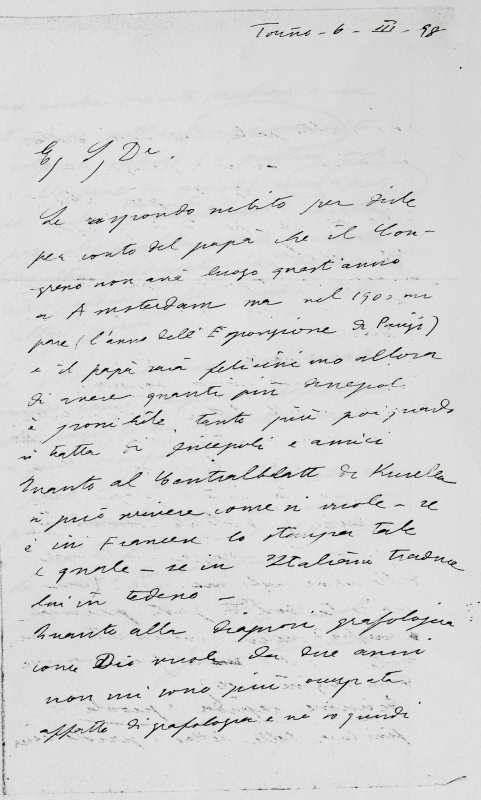 Torino - 6 - III - 98
Eg Sg Dr.
Le rispondo subito per dirle
per conto del papà che il Con-
gresso non avrà luogo quest'anno
a Amsterdam ma nel 1900 mi
pare (l'anno dell'Esposizione di Parigi)
e il papà sarà felicissimo allora
di avere quanti più discepoli
è possibile tanto più poi quando
si tratta di discepoli e amici
Quanto al Centralblatt di Kurella
si può scrivere come si vuole - se
è in Francese lo stampa tale
e quale - se in Italiano traduce
lui in tedesco -
Quanto alla diagnosi grafologica
come Dio vuole da due anni
non mi sono più occupata
affatto di grafologia e ne so quindi